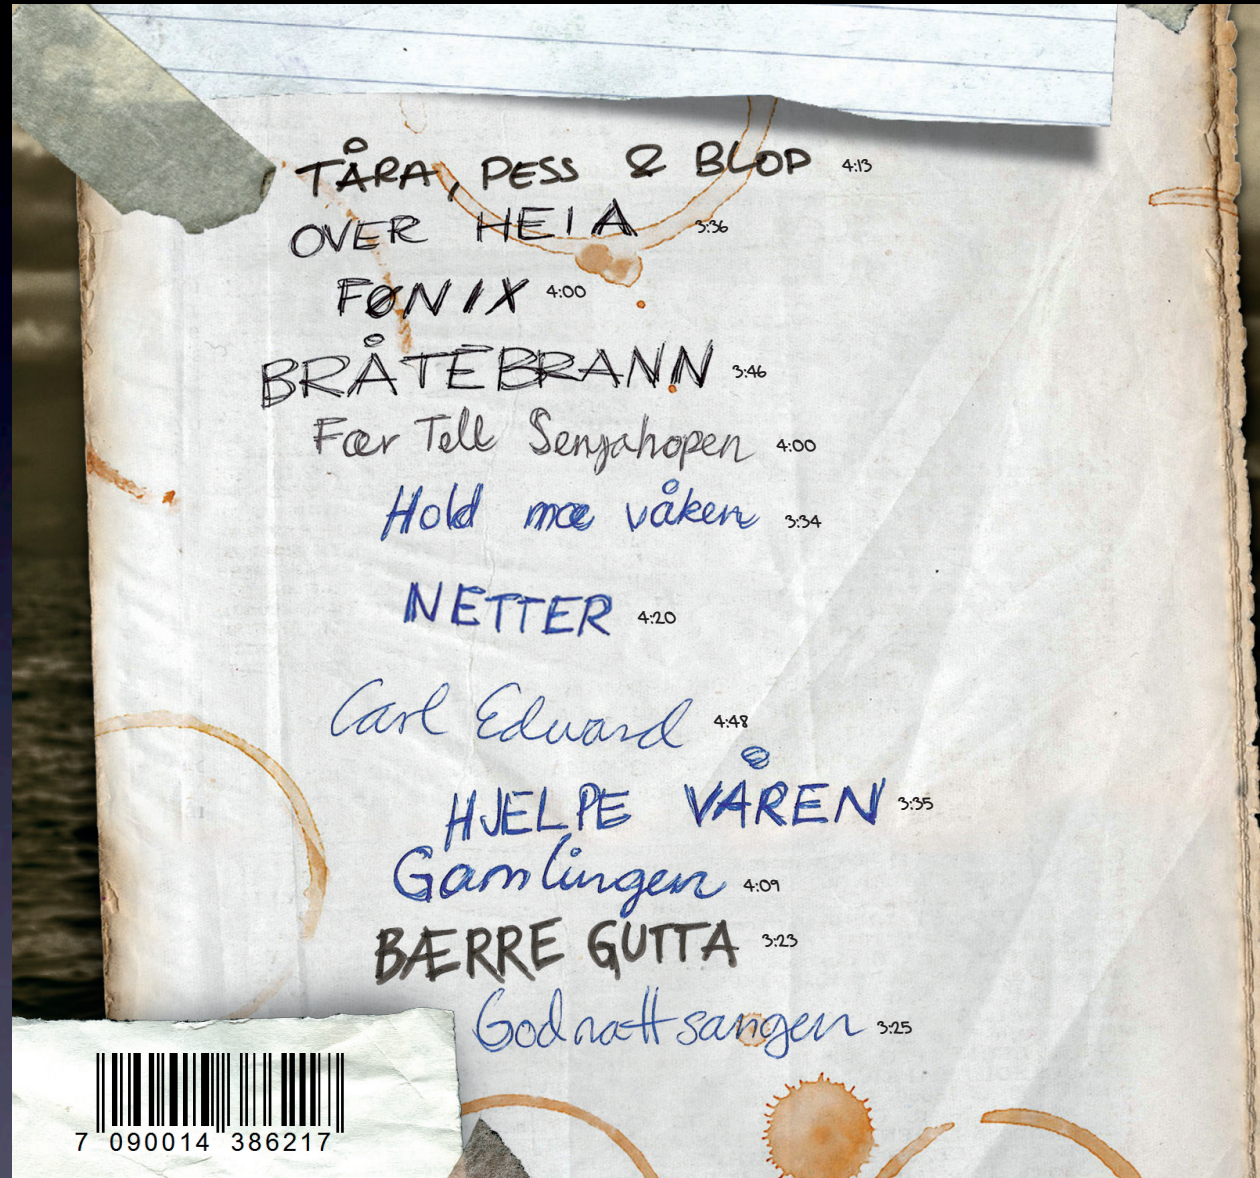 TÅRA, PESS & BLOD 4:13
OVER HEIA 3:36
FØNIX 4:00
BRÅTEBRANN 3:46
Fær Tell Senjahopen 4:00
Hold mæ våken 3:34
NETTER 4:20
Carl Edward 4:48
HJELPE VÅREN 3:35
Gamlingen 4:09
BÆRRE GUTTA 3:23
Godnattsangen 3:25
7 090014 386217